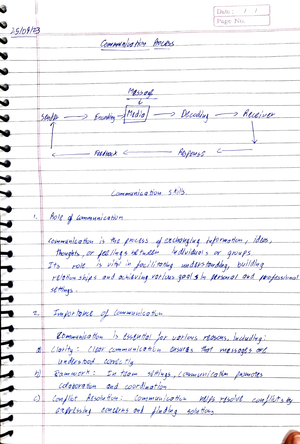 Date : / /
Page No.
25/09/23
Communication Process
Message
Sender → Encoding → Media → Decoding → Receiver
Feedback ← Response
Communication skills.
1. Role of communication
Communication is the process of exchanging information, ideas,
thoughts, or feelings between individuals or groups.
Its role is vital in facilitating understanding, building
relationships and achieving various goals in personal and professional
settings.
2. Importance of communication
Communication is essential for various reasons, including:
a) Clarity: Clear communication ensures that messages are
understood correctly
b) Teamwork: In team settings, communication promotes
collaboration and coordination
c) Conflict Resolution: Communication helps resolve conflicts by
expressing concerns and finding solutions